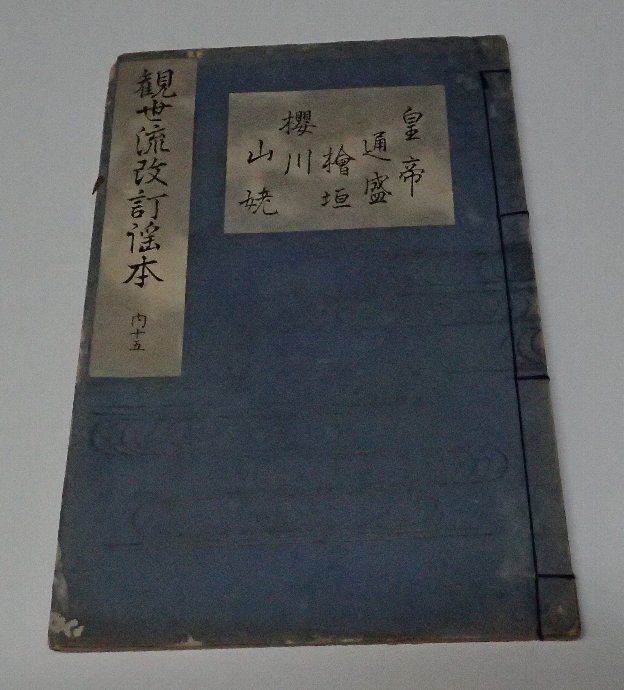 皇帝
通盛
檜垣
櫻川
山姥
観世流改訂謡本
内十五